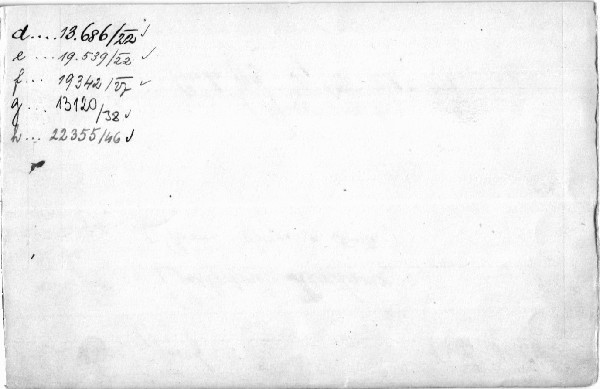 d .... 13.686/22 ✓
e .... 19.539/22 ✓
f ... 19342/27 ✓
g ... 13120/38 ✓
h ... 22355/46 ✓